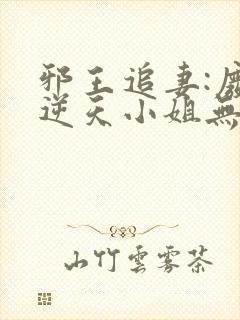 邪王追妻:
逆天小姐無
山竹雲霧茶